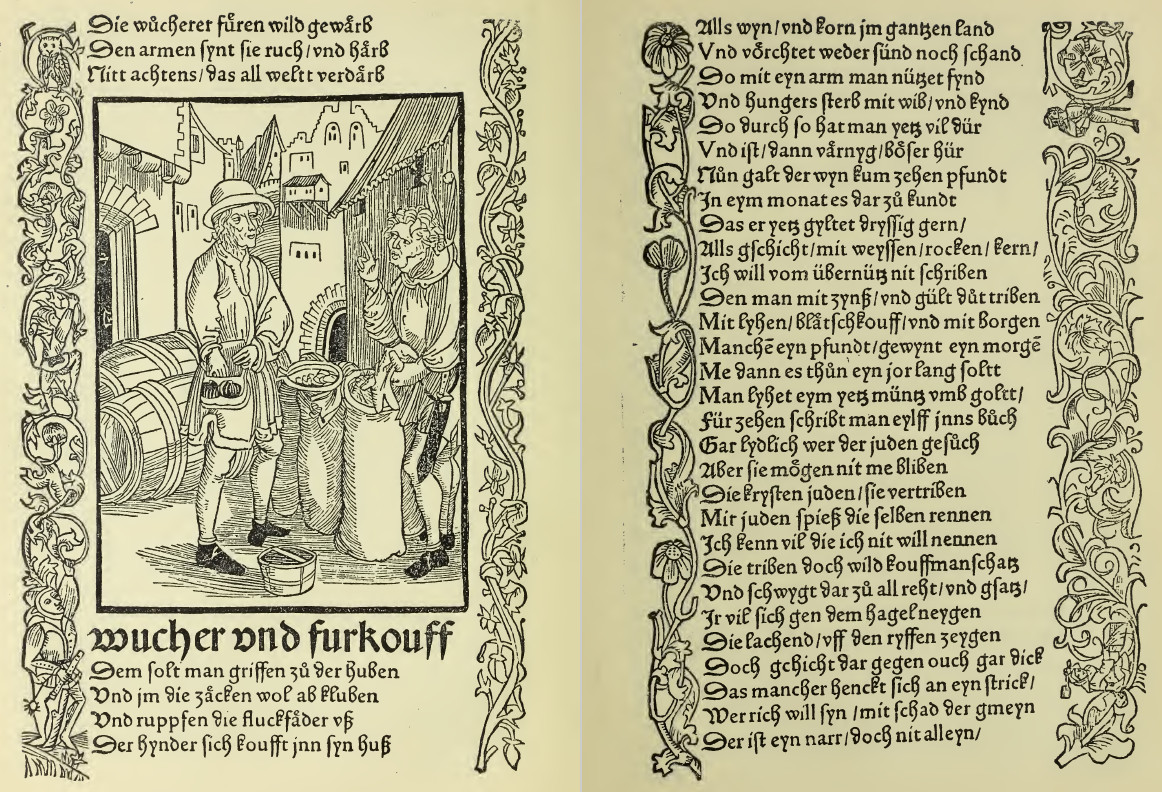 Die wůcherer fůren wild gewårb
Den armen synt sie ruch / vnd hårb
Nitt achtens / das all weltt verdårb
wucher vnd furkouff
Dem solt man griffen zů der huben
Vnd jm die zåcken wol ab kluben
Vnd ruppfen die fluckfåder vß
Der hynder sich koufft jnn syn huß
Alls wyn / vnd korn jm gantzen land
Vnd vörchtet weder sünd noch schand
Do mit eyn arm man nützet fynd
Vnd hungers sterb mit wib / vnd kynd
Do durch so hat man yetz vil dür
Vnd ist / dann värnyg / böser hür
Nůn galt der wyn kum zehen pfundt
Jn eym monat es dar zů kundt
Das er yetz gyltet dryssig gern /
Alls gschicht / mit weyssen / rocken / kern /
Jch will vom übernütz nit schriben
Den man mit zynß / vnd gült důt triben
Mit lyhen / blåtschkouff / vnd mit borgen
Manchē eyn pfundt / gewynt eyn morgē
Me dann es thůn eyn jor lang soltt
Man lyhet eym yetz müntz vmb goltt /
Für zehen schribt man eylff jnns bůch
Gar lydlich wer der juden gesůch
Aber sie mögen nit me bliben
Die krysten juden / sie vertriben
Mit juden spieß die selben rennen
Jch kenn vil die ich nit will nennen
Die triben doch wild kouffmanschatz
Vnd schwygt dar zů all reht / vnd gsatz /
Jr vil sich gen dem hagel neygen
Die lachend / vff den ryffen zeygen
Doch gchicht dar gegen ouch gar dick
Das mancher henckt sich an eyn strick /
Wer rich will syn / mit schad der gmeyn
Der ist eyn narr / doch nit alleyn /